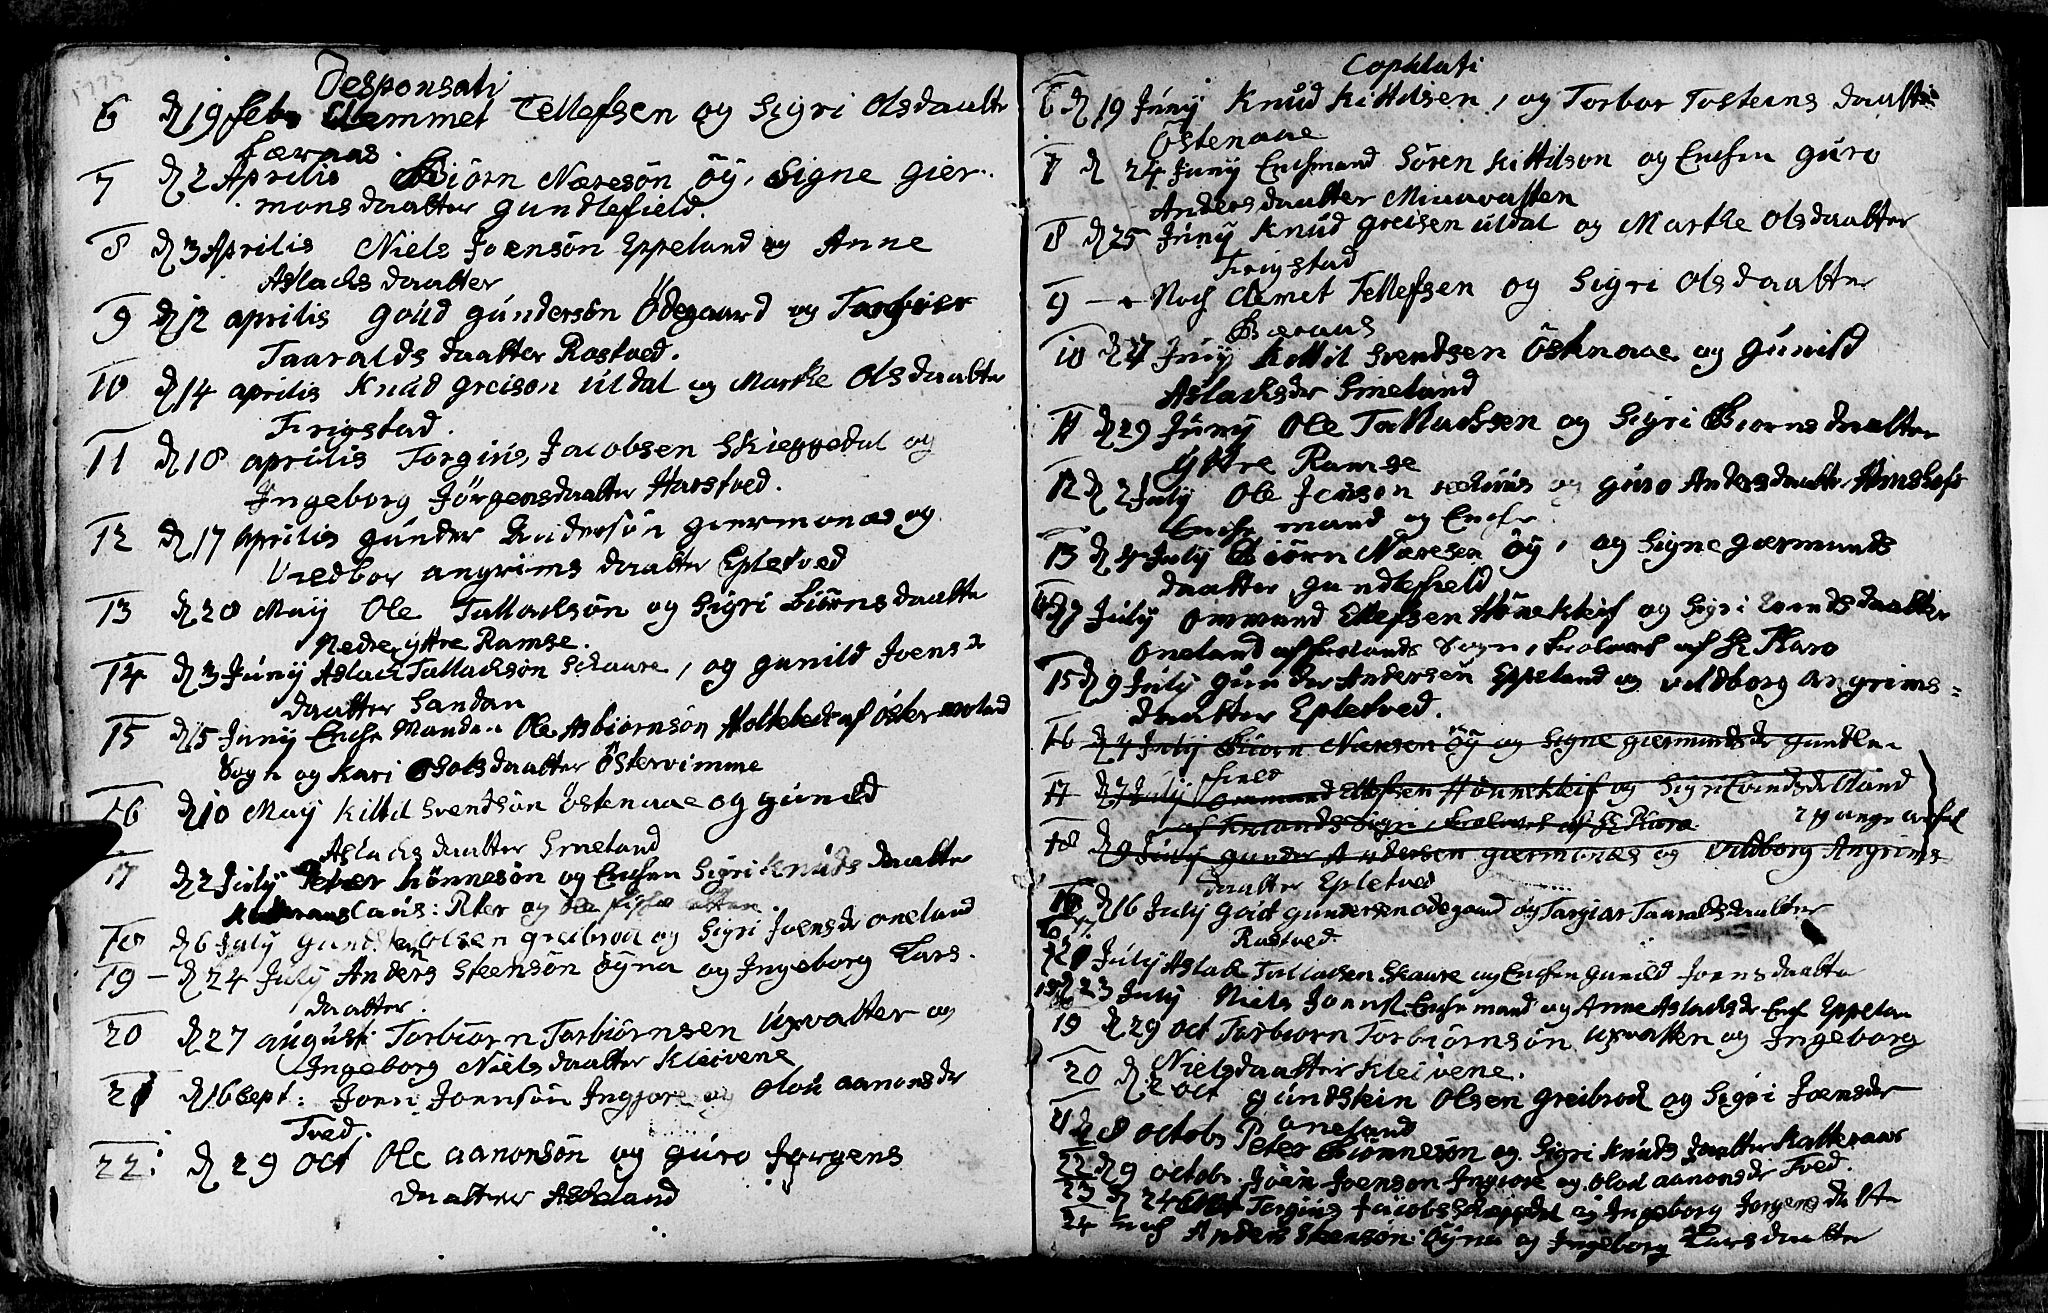 Desponsati
6 d 19 febr Clemmet Tellefsen og Sigri Olsdaatter
færaas.
7 d 2 Aprilis Biörn Næresön Öÿ, Signe gier-
monsdaatter gundlefield.
8 d 3 Aprilis Niels Joensön Eppeland og Anne
Aslachsdaatter
9 d 12 aprilis goüd gündersön Ödegaard og Torbier
Taaraldsdaatter Rostved.
10 d 14 aprilis Knüd greison Uldal og Marthe Olsdaatter
Frigstad.
11 d 18 aprilis Torgius Jacobsen Skieggedal og
Ingeborg Jörgensdaatter Harstved.
12 d 17 Aprilis günder Andersön giermonæs og
Vredbor angrims daatter Epletved
13 d 28 Maÿ Ole Talladsön og Sigri Biörnsdaatter
Nedre ÿttre Ramse.
14 d 3 Junÿ Aslach Tallachsön Schaare, og gunild Joens
daatter Sandan
15 d 5 Junÿ Enche Manden Ole Asbiornsön Holtebech af Öster
Sogn og Kari Osolsdaatter Östervimme
16 d 10 Maÿ Kittil Svendsön Ostenaae og günild
Aslachsdaatter Smeland
17 d 2 Julÿ Peter Lönnesön og Enchen Sigri Knüds daatter
Peter og
18 d 6 Julÿ gundsten Olsen greibrod og Sigri Joensdr oneland
19 – d 24 Julÿ Anders Steensön Öÿna og Ingeborg Lars-
daatter.
20 d 27 august Torbiorn Torbiörnsen Uxvatter og
Ingeborg Nielsdaatter Kleivene
21 d 16 Sept: Joen Joensön Ingjore og Olou aanonsdr
Tved.
22 d 29 Oct Ole aanonsön og güro Jorgens
daatter Askeland
Copulati
6 d 19 Junÿ Knüd Kittilsen, og Torbor Tosteinsdaatter
Östenaae
7 d 24 Junÿ Enchmand Sören Kittilson og Enchen güro
Andersdaatter Miaavatten
8 d 25 Junÿ Knüd greisen Uldal og Marthe Olsdaatter
Frigstad
9 – Noch Clemet Tellefsen og Sigri Olsdaatter
færaas
10 d 27 Junÿ Kittil Svendsen Östenaae og günild
Aslachsdr Smeland
11 d 29 Junÿ Ole Talladsen og Sigri Biornsdaatter
ÿttre Ramse
12 d 2 Julÿ Ole Jenson og güro Andersdaatter
Enche mand og Enche.
13 d 4 Julÿ Biörn Næresen Öÿ, og Signe gærmunds
daatter gundlefield
14 d 7 Julÿ Ommund Ellefsen Hönekleif og Sigri Evindsdaatter
Oneland af Frolands Sogn,
15 d 9 Julÿ Gunder Andersen Eppeland og Vildborg angrims=
daatter Epletved.
16 d 4 Julÿ Biörn Næresen Öÿ og Signe giermundsdr gundle-
field
17 d 7 Julÿ Ommund Ellefsen Hönnekleif og Sigri Evindsdr
af Frolands Sogn,
18 d 9 Julÿ gunder Andersen giermonæs og Vildborg Angrims-
daatter Epletved
16 d 16 Julÿ goüt gundersen ödegaard og Targier Taaraldsdaatter
Rostved.
17 d Julÿ Aslak Talladsen Skaare og Enchen gunild Joensdaatter
18 d 23 Julÿ Niels Joensen Enche mand og Anne Aslachsdr Eppelan
19 d 29 Oct Torbiorn Torbiörnsön Uxvatten og Ingeborg
Nielsdaatter Kleivene.
20 d 2 Oct gündstein Olsen greibrod og Sigri Joensdr
oneland
21 d 8 octobr Peter Lonnesön og Sigri Knüdsdaatter Katteraas
22 d 9 octobr Joen Joenson Ingjore og Olod aanonsdr Tved.
23 d 24 Oct Torgius Jacobs Schieggedal og Ingeborg Jorgensdatter
24 Noch Anders Steensön Öÿna og Ingeborg Larsdaatter